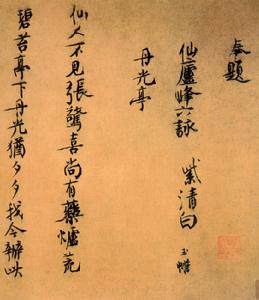 奉題
仙廬峰六詠　紫清白玉蟾
丹光亭
仙人不見張驚喜尚有藥爐荒
碧苔亭下丹光猶夕夕我今辦此